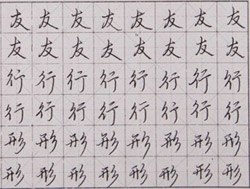 友友友友友友友友
友友友友友友友友
行行行行行行行行
行行行行行行行行
形形形形形形形形
形形形形形形形形